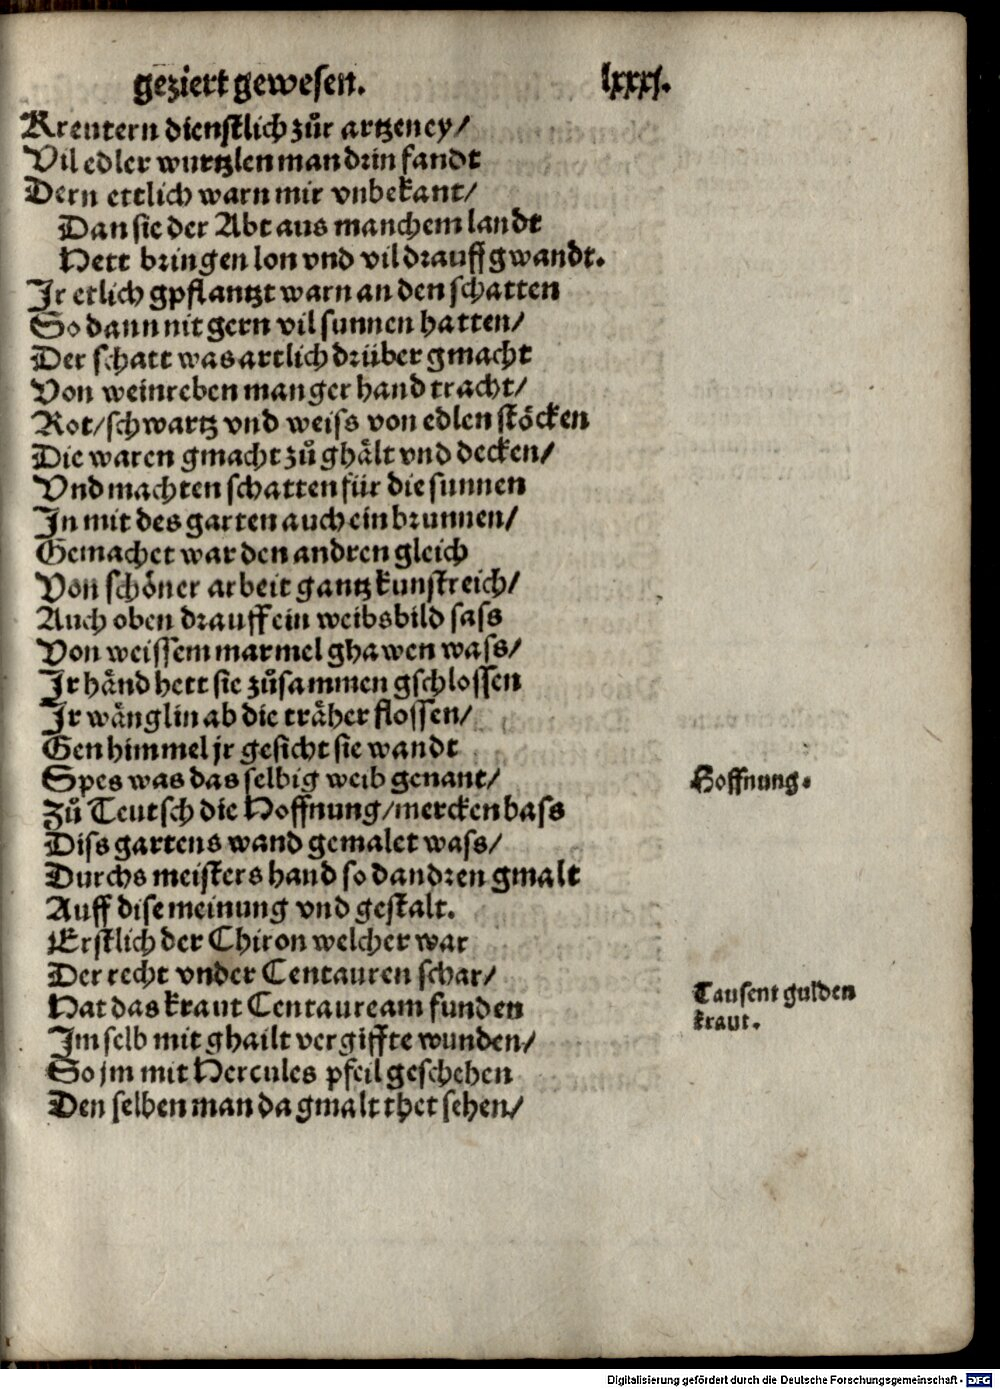 geziert gewesen. lxxxj.
Kreutern dienstlich zůr artzeney/
Vil edler wurtzlen man drin fandt
Dern ettlich warn mir vnbekant/
Dan sie der Abt aus manchem landt
Hett bringen lon vnd vil drauff gwandt.
Jr etlich gpflantzt warn an den schatten
So dann nit gern vil sunnen hatten/
Der schatt was artlich drüber gmacht
Von weinreben manger hand tracht/
Rot/schwartz vnd weiss von edlen stöcken
Die waren gmacht zů ghält vnd decken/
Vnd machten schatten für die sunnen
Jn mit des garten auch ein brunnen/
Gemachet war den andren gleich
Von schöner arbeit gantz kunstreich/
Auch oben drauff ein weibsbild sass
Von weissem marmel ghawen wass/
Jr händ hett sie zůsammen gschlossen
Jr wänglin ab die träher flossen/
Gen himmel jr gesicht sie wandt
Spes was das selbig weib genant/
Hoffnung.
Zů Teutsch die Hoffnung/mercken bass
Diss gartens wand gemalet wass/
Durchs meisters hand so dandren gmalt
Auff dise meinung vnd gestalt.
Erstlich der Chiron welcher war
Der recht vnder Centauren schar/
Tausent gulden
kraut.
Hat das kraut Centauream funden
Jm selb mit ghailt vergiffte wunden/
So jm mit Hercules pfeil geschehen
Den selben man da gmalt thet sehen/
Digitalisierung gefördert durch die Deutsche Forschungsgemeinschaft - DFG